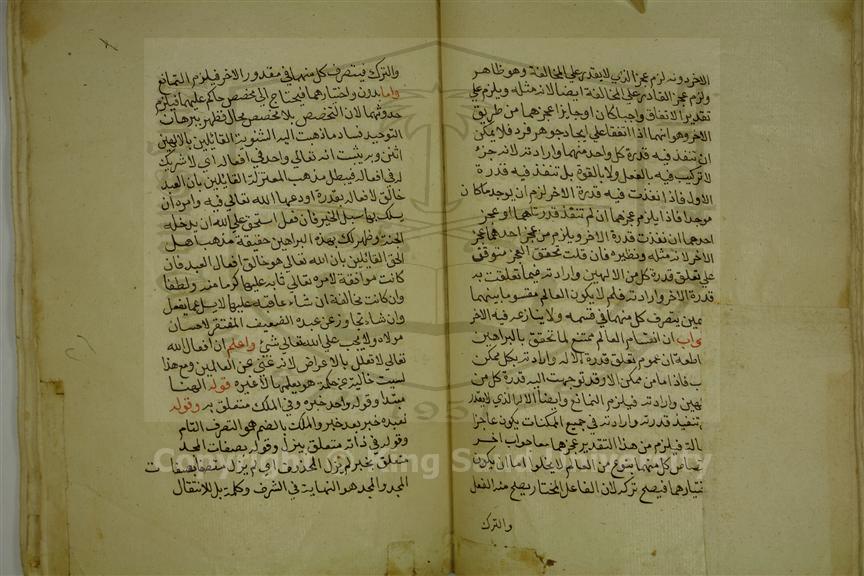 الاخر دونه لزم عجز الذي لا يقدر علي المخالفة وهو ظاهر
ولزم عجز القادر علي المخالفة ايضا لانه مثله ويلزم علي
تقدير الاتفاق واجبا كان او جايزا عجزهما من طريق
الاخر وهو انهما اذا اتفقا علي ايجاد جوهر فرد فلا يمكن
ان تنفذ فيه قدرة كل واحد منهما وارادته لانه جزء
لا تركيب فيه بالفعل ولا بالقوة بل تنفذ فيه قدرة
الاول فاذا نفذت فيه قدرة الاخر لزم ان يوجد ما كان
موجدا فاذا يلزم عجزهما ان لم تنفذ قدرتهما او عجز
احدهما ان نفذت قدرة الاخر ويلزم من عجز احدهما عجز
الاخر لانه مثله ونظيره فان قلت تحقق العجز متوقف
علي تعلق قدرة كل من الالهين وارادته فيما تعلقت به
قدرة الاخر وارادته فلم لا يكون العالم مقسوما بينهما
يتصرف كل منهما في قسمه ولا ينازعه فيه الاخر
واب ان انقسام العالم ممتنع لما تحقق بالبراهين
اطعة ان عموم تعلق قدرة الاله وارادته بكل ممكن
ب فاذا ما من ممكن الا وقد توجهت اليه قدرة كل من
لهين وارادته فيلزم التمانع وايضا الاله الذي لا يقدر
تنفيذ قدرته وارادته في جميع الممكنات يكون عاجزا
الة فيلزم من هذا التقدير عجزهما معا جواب اخر
صاص كل منهما بنوع من العالم لا يخلو اما ان يكون
ختيارهما فيصح تركه لان الفاعل المختار يصح منه الفعل
والترك
والترك فيتصرف كل منهما في مقدور الاخر فيلزم التمانع
واما بدون اختيارهما فيحتاج الي مخصص حاكم عليهما فيلزم
حدوثهما لان التخصص بلا مخصص محال فظهر ببرهان
التوحيد فساد ما ذهبت اليه الثنوية القائلين بالالهين
اثنين وبه يثبت انه تعالي واحد في افعاله اي لا شريك
له في افعاله فيبطل مذهب المعتزلة القائلين بان العبد
خالق لافعاله بقدرة اودعها الله تعالي فيه وامره ان
يسلك بها سبل الخير فان فعل استحق علي الله ان يدخله
الجنة وظهر لك بهذه البراهين حقيقة مذهب اهل
الحق القائلين بان الله تعالي هو خالق افعال العبد فان
كانت موافقة لامره تعالي ثابه عليها كرما منه ولطفا
وان كانت مخالفة ان شاء عاقبه عليها لا يسل عما يفعل
وان شاء تجاوز عن عبده الضعيف المفتقر لاحسان
مولاه ولا يجب علي الله تعالي شي واعلم ان افعال الله
تعالي لا تعلل بالاعراض لانه غني عن العالمين ومع هذا
ليست خالية عن حكمة هو يعلمها لا غيره قوله الهنا
مبتدا وقوله واحد خبره وفي الملك متعلق به وقوله
نعبده خبر بعد خبر والملك بالضم هو التصرف التام
وقوله في ذاته متعلق بينزل وقوله بصفات المجد
متعلق بخبر لم يزل المحذوف اي لم يزل متصفا بصفات
المجد والمجد هو النهاية في الشرف وكلمة بل للانتقال
Copyright © King Saud University